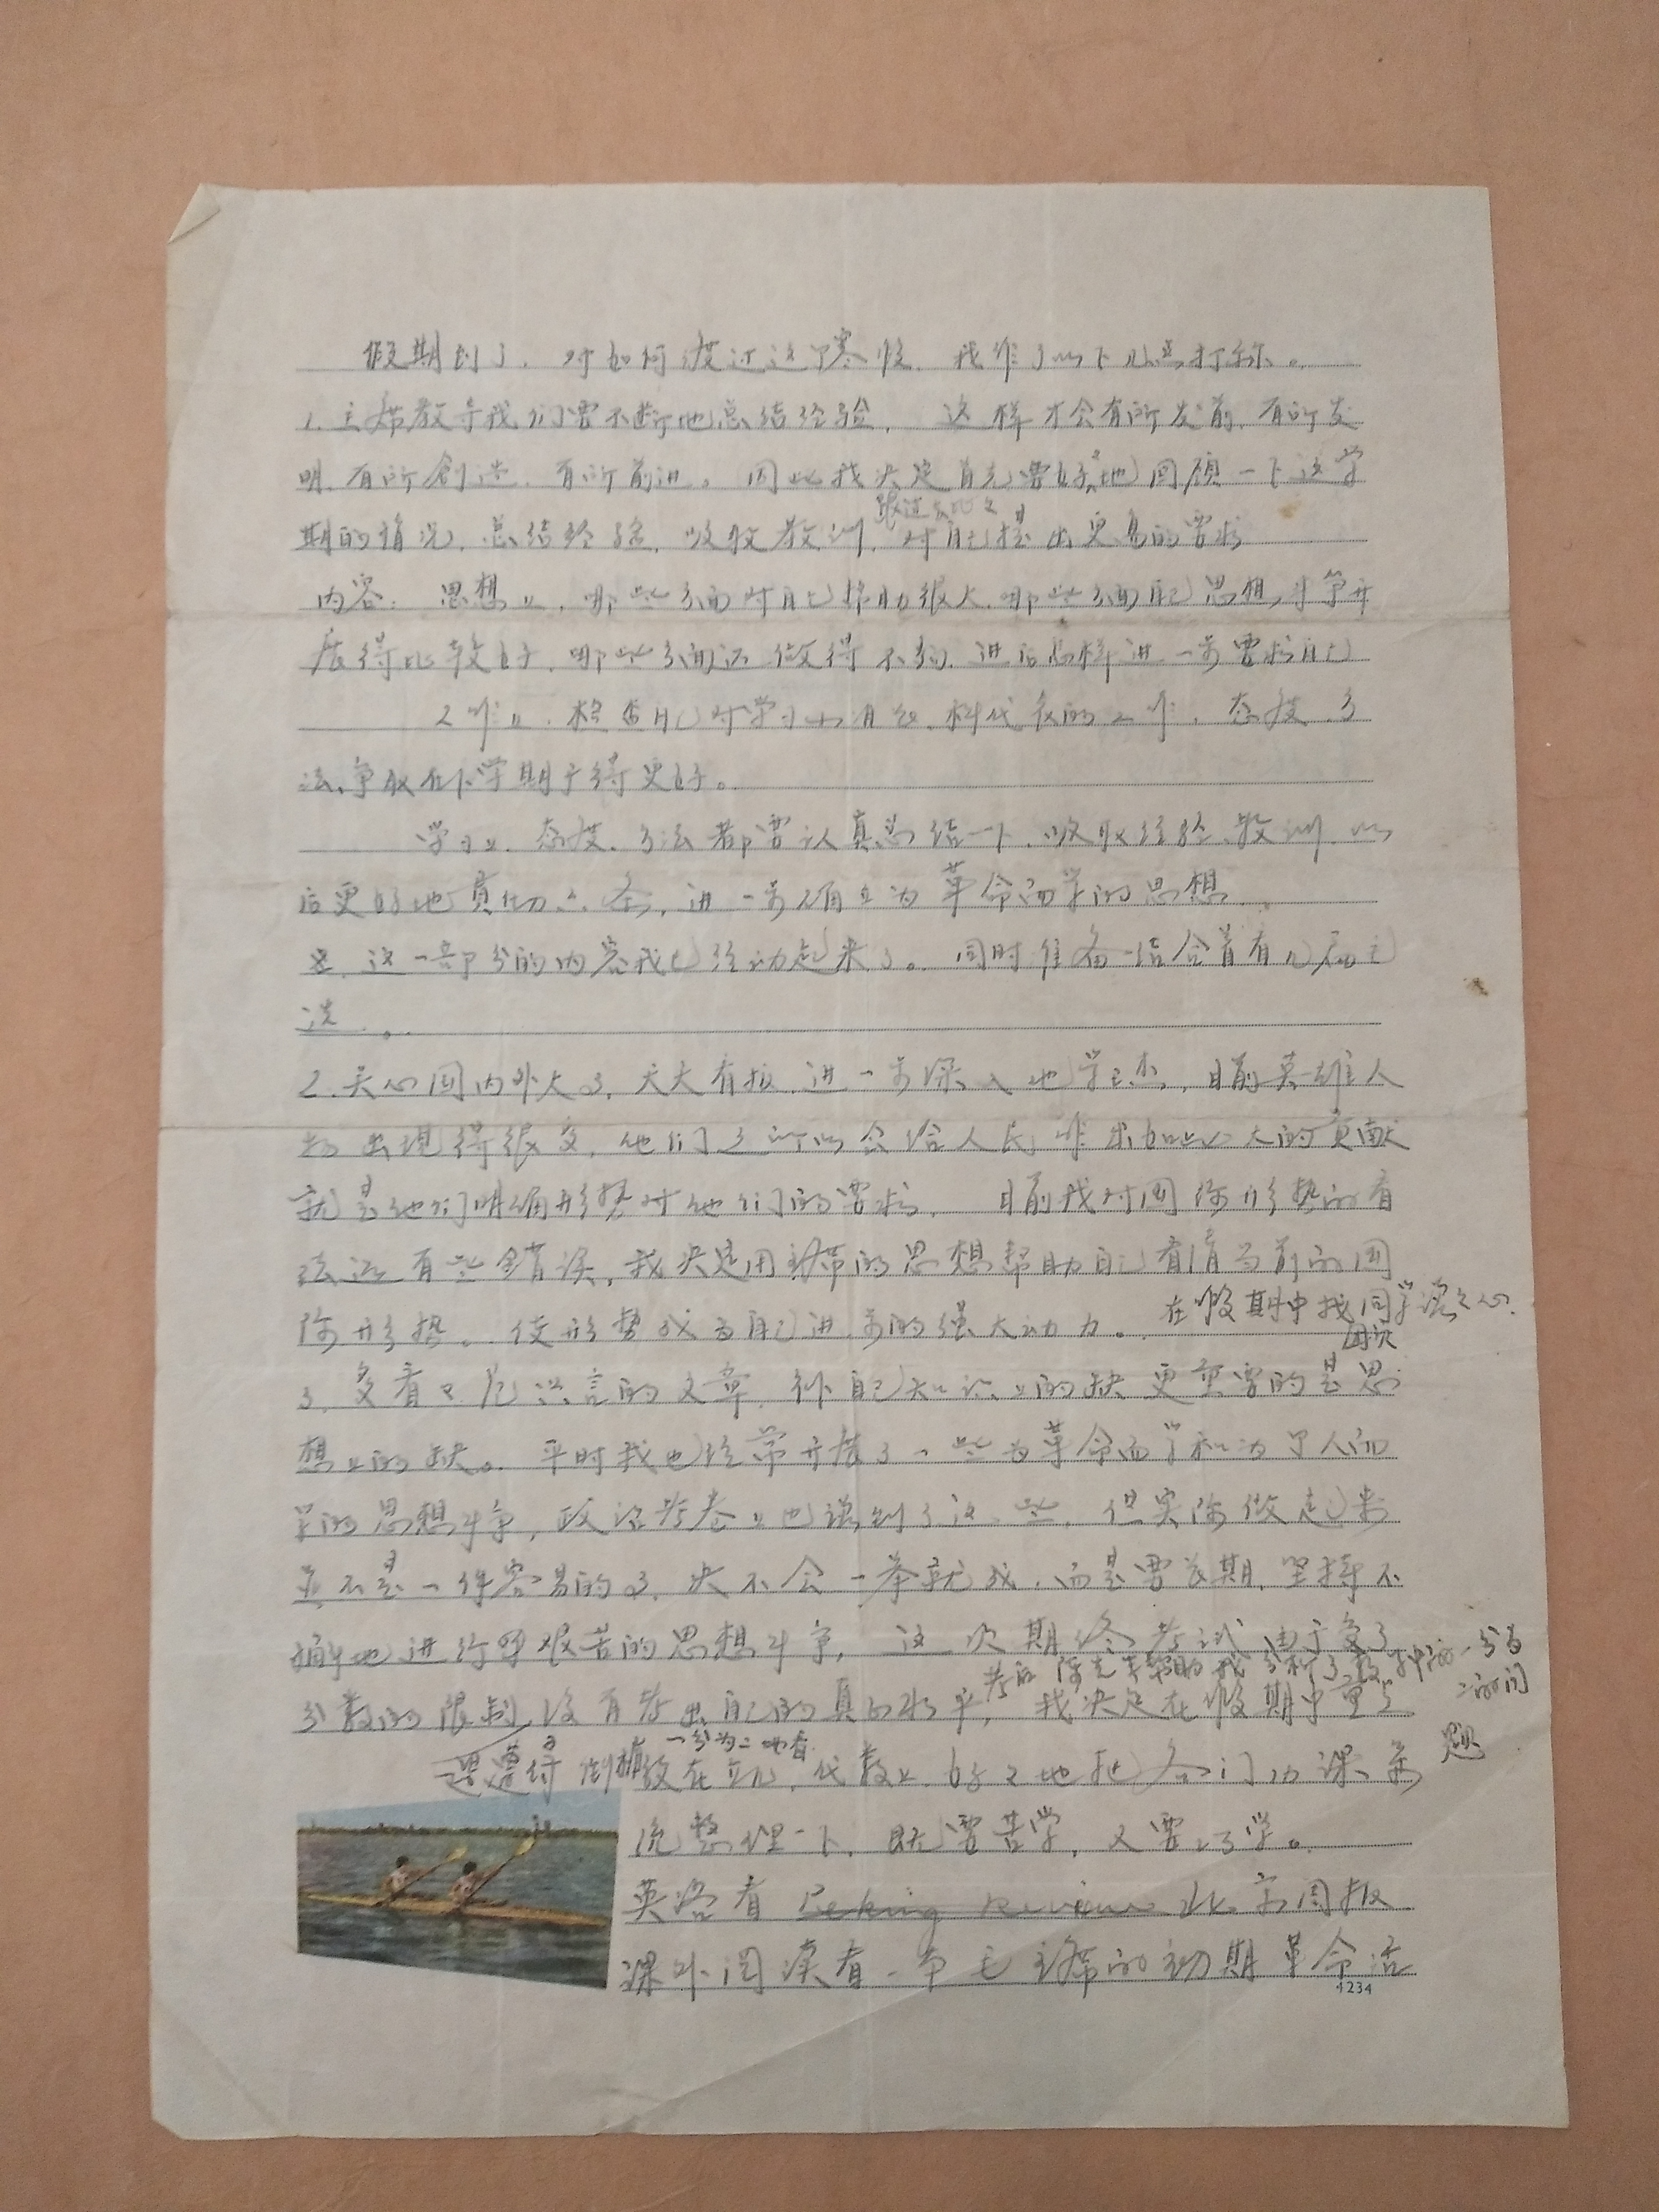 假期到了．对如何渡过这个寒假．我作了以下几点打祘。
1.主席教导我们要不断地总结经验，这样才会有所发明、有所发
明、有所創造、有所前进。因此我决定首先要好好地回顾一下这学
期的情况，总结经验，吸收教训，对自己提出更高的要求
内容：思想上，哪些方面对自己帮助很大．哪些方面自己思想斗争开
展得比较好，哪些方面还做得不够．进后怎样进一步要求自己
工作上．检查自己对学习、科代表的工作，态度、方
法、争取在下学期干得更好。
学习上．态度、方法都要认真总结一下．吸取经验、教训．以
后更好地，进一步确立为革命而学的思想．
这一部分的内容我已经动起来了。同时准备结合着看几
选。
2.关心国内外大事，天天看报．进一步深入地学毛杰，目前英雄人
物出现得很多，他们之所以会给人民作出如此大的贡献
就是他们明确形势对他们的要求．目前我对国际形势的看
法还有些錯误，我决定用主席的思想帮助自己看清当前的国
际形势。使形势成为自己进步的强大动力。在假期中找同学谈谈心．
3、多看文章，补自己知识上的缺更重要的是思
想上的缺。平时我也经常开展了一些为革命而学和为个人而
学的思想斗争，政治考卷上也谈到了这一些，但实际做起来
并不是一件容易的事，决不会一举就成．而是要长期、坚持不
懈地进行艰苦的思想斗争，这次期终考试由于受了
考后陈老师帮助我分析了一分为
二的问
题
分数的限制没有考出自己的真的水平，我决定在假期中重点
一分为二地看
放在立几、代数上．好好地把各门功课系
统整理一下，既要苦学，又要巧学。
英语看 Peking Review 北京周报
课外阅读看一本毛主席的初期革命活
4234